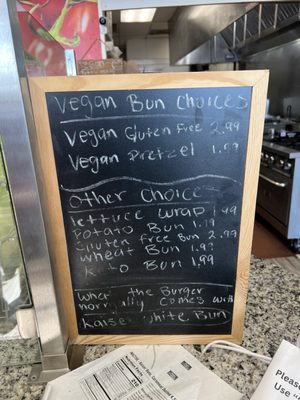 Vegan Bun Choices
Vegan Gluten Free 2.99
Vegan Pretzel 1.99
Other Choices
lettuce wrap 1.49
Potato Bun 1.79
Gluten Free Bun 2.99
Wheat Bun 1.99
Keto Bun 1.99
What the Burger
normally comes with
Kaiser White Bun
Please
Use